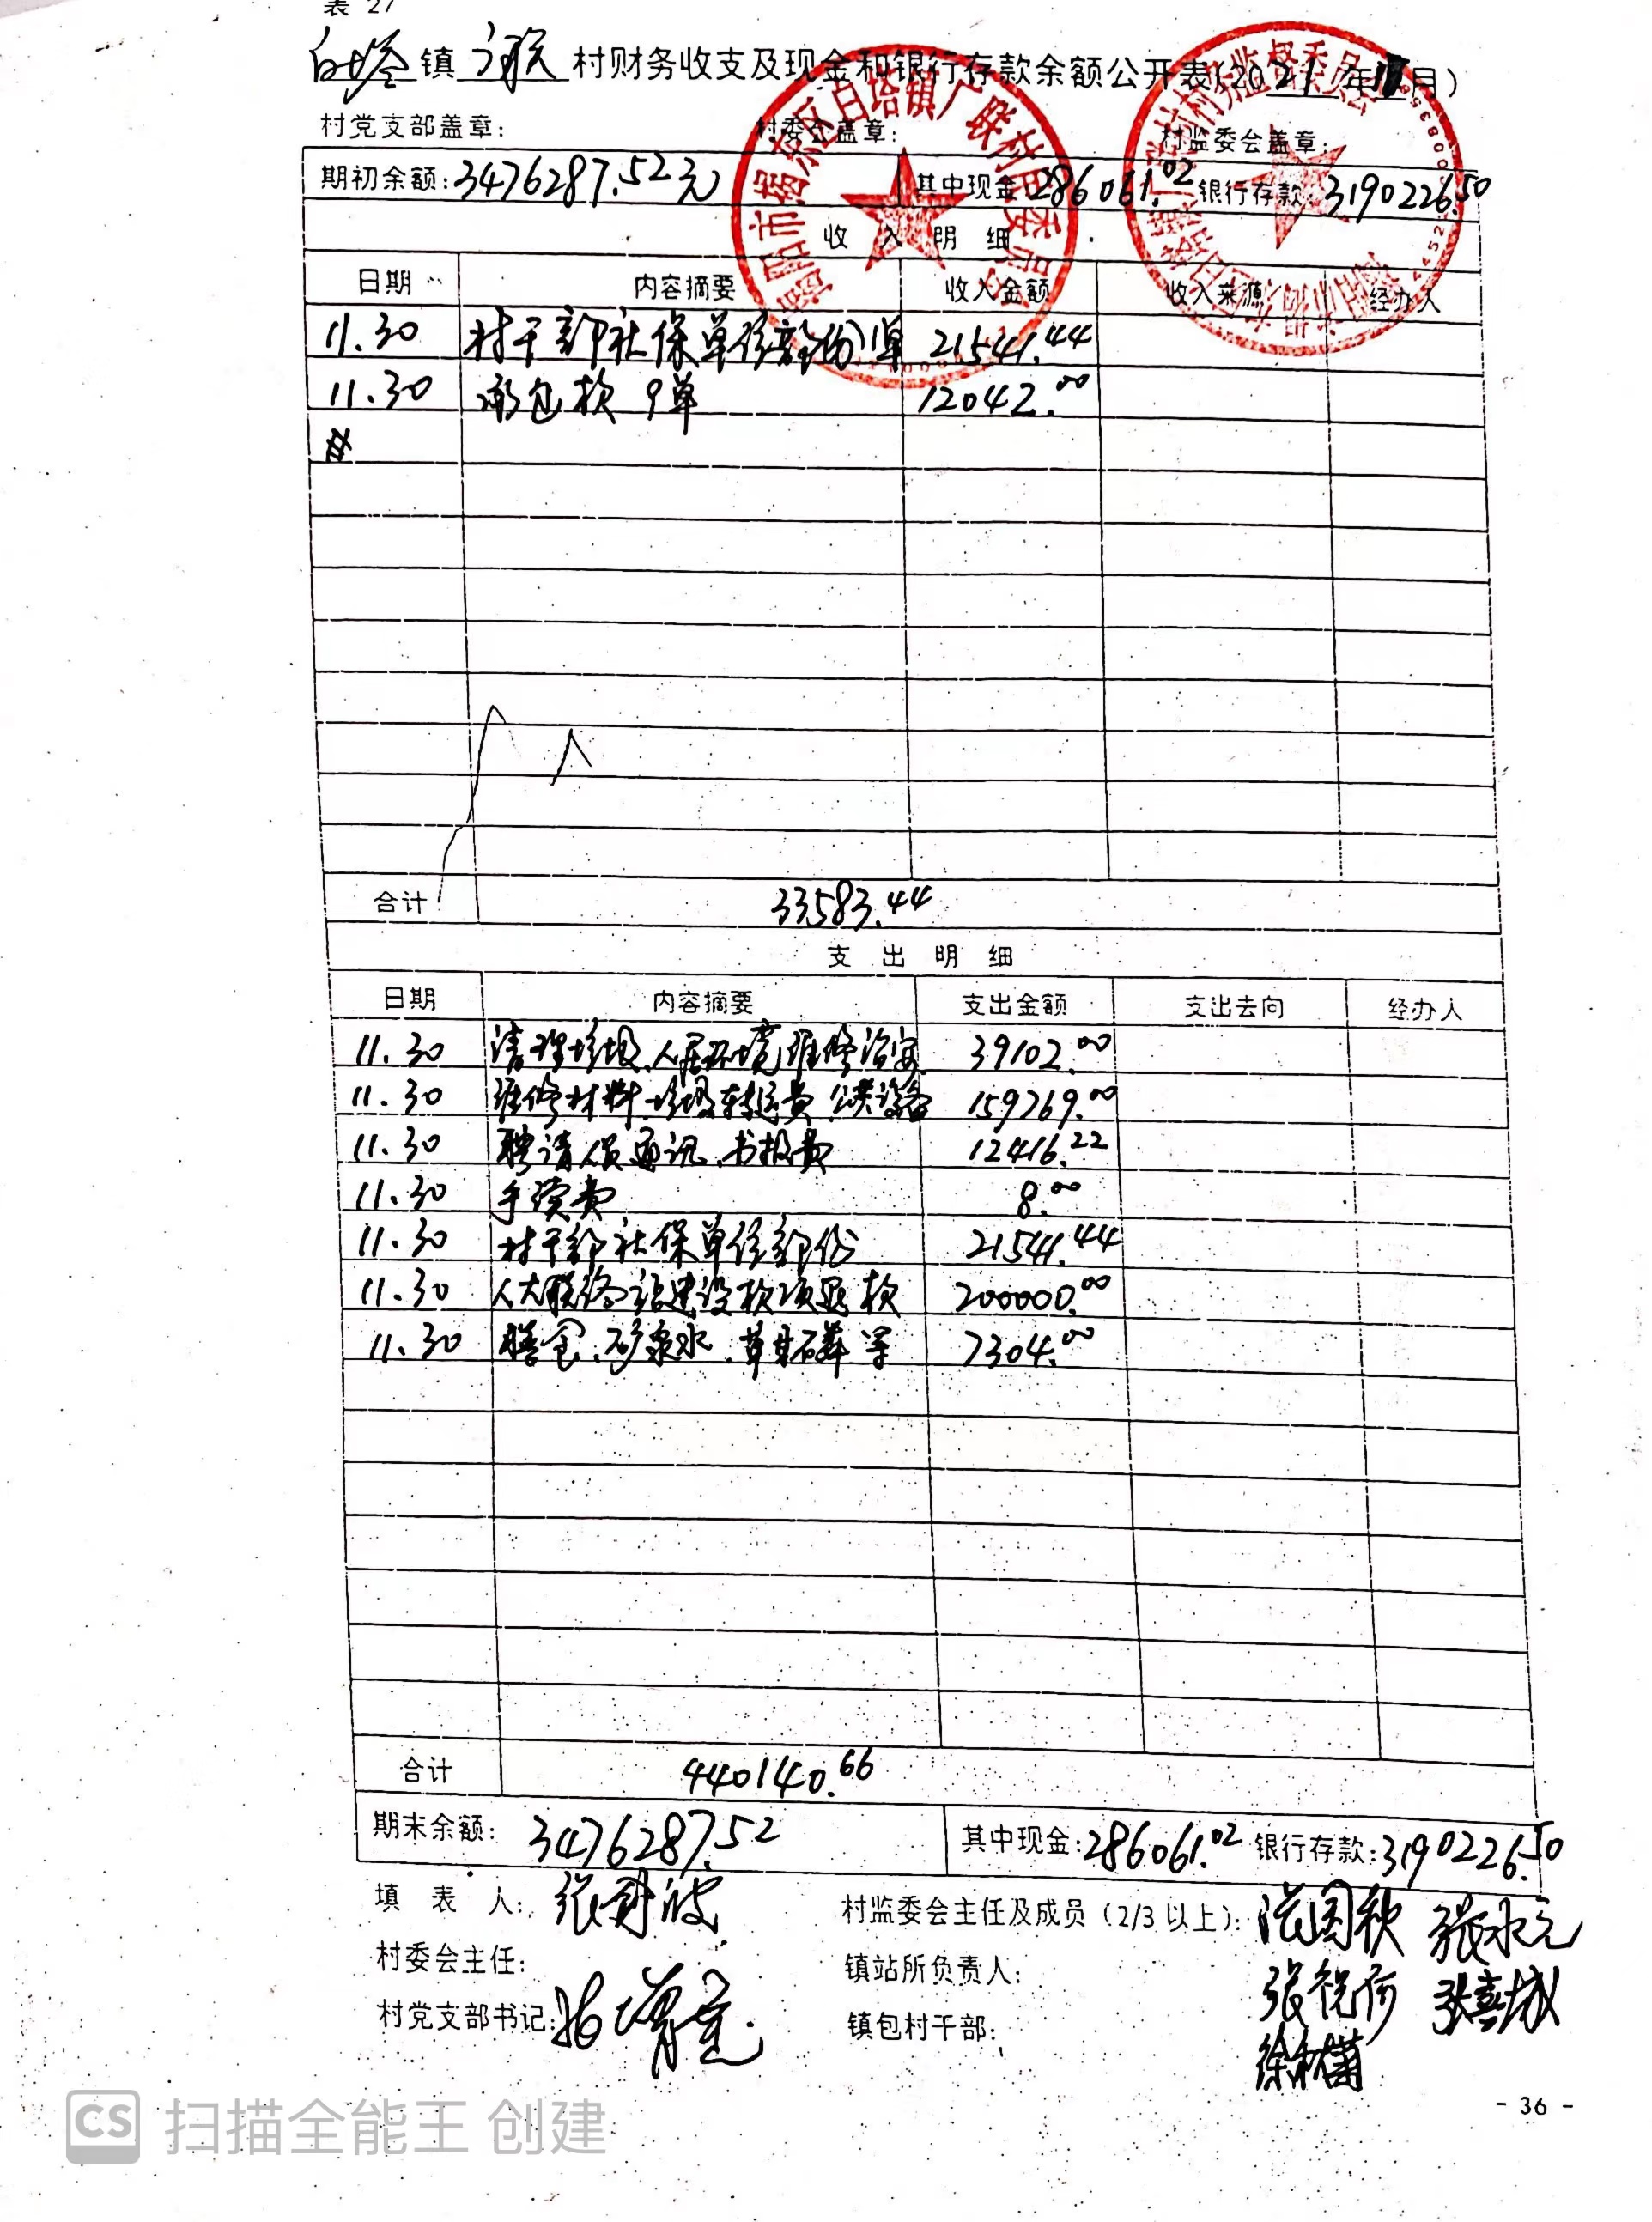 表 27
白塔镇广联村财务收支及现金和银行存款余额公开表(2021年11月)
村党支部盖章: 村委会盖章: 村监委会盖章:
期初余额:3476287.52元 其中现金:286061.02 银行存款:3190226.50
收入明细
日期 内容摘要 收入金额 收入来源 经办人
11.30 村干部社保单位部份1单 21541.44
11.30 承包款 9单 12042.00
合计 33583.44
支出明细
日期 内容摘要 支出金额 支出去向 经办人
11.30 清理垃圾、人居环境维修治安 39102.00
11.30 维修材料、垃圾转运费、公共设备 159769.00
11.30 聘请人员通讯、书报费 12416.22
11.30 手续费 8.00
11.30 村干部社保单位部份 21541.44
11.30 人大联络站建设款项退款 200000.00
11.30 膳食、矿泉水、草甘磷等 7304.00
合计 440140.66
期末余额: 3476287.52 其中现金:286061.02 银行存款:3190226.50
填表人: 张 波 村监委会主任及成员(2/3以上): 张国秋 张永元
村委会主任: 镇站所负责人: 张 张喜城
村党支部书记: 镇包村干部: 徐
- 36 -
CS 扫描全能王 创建